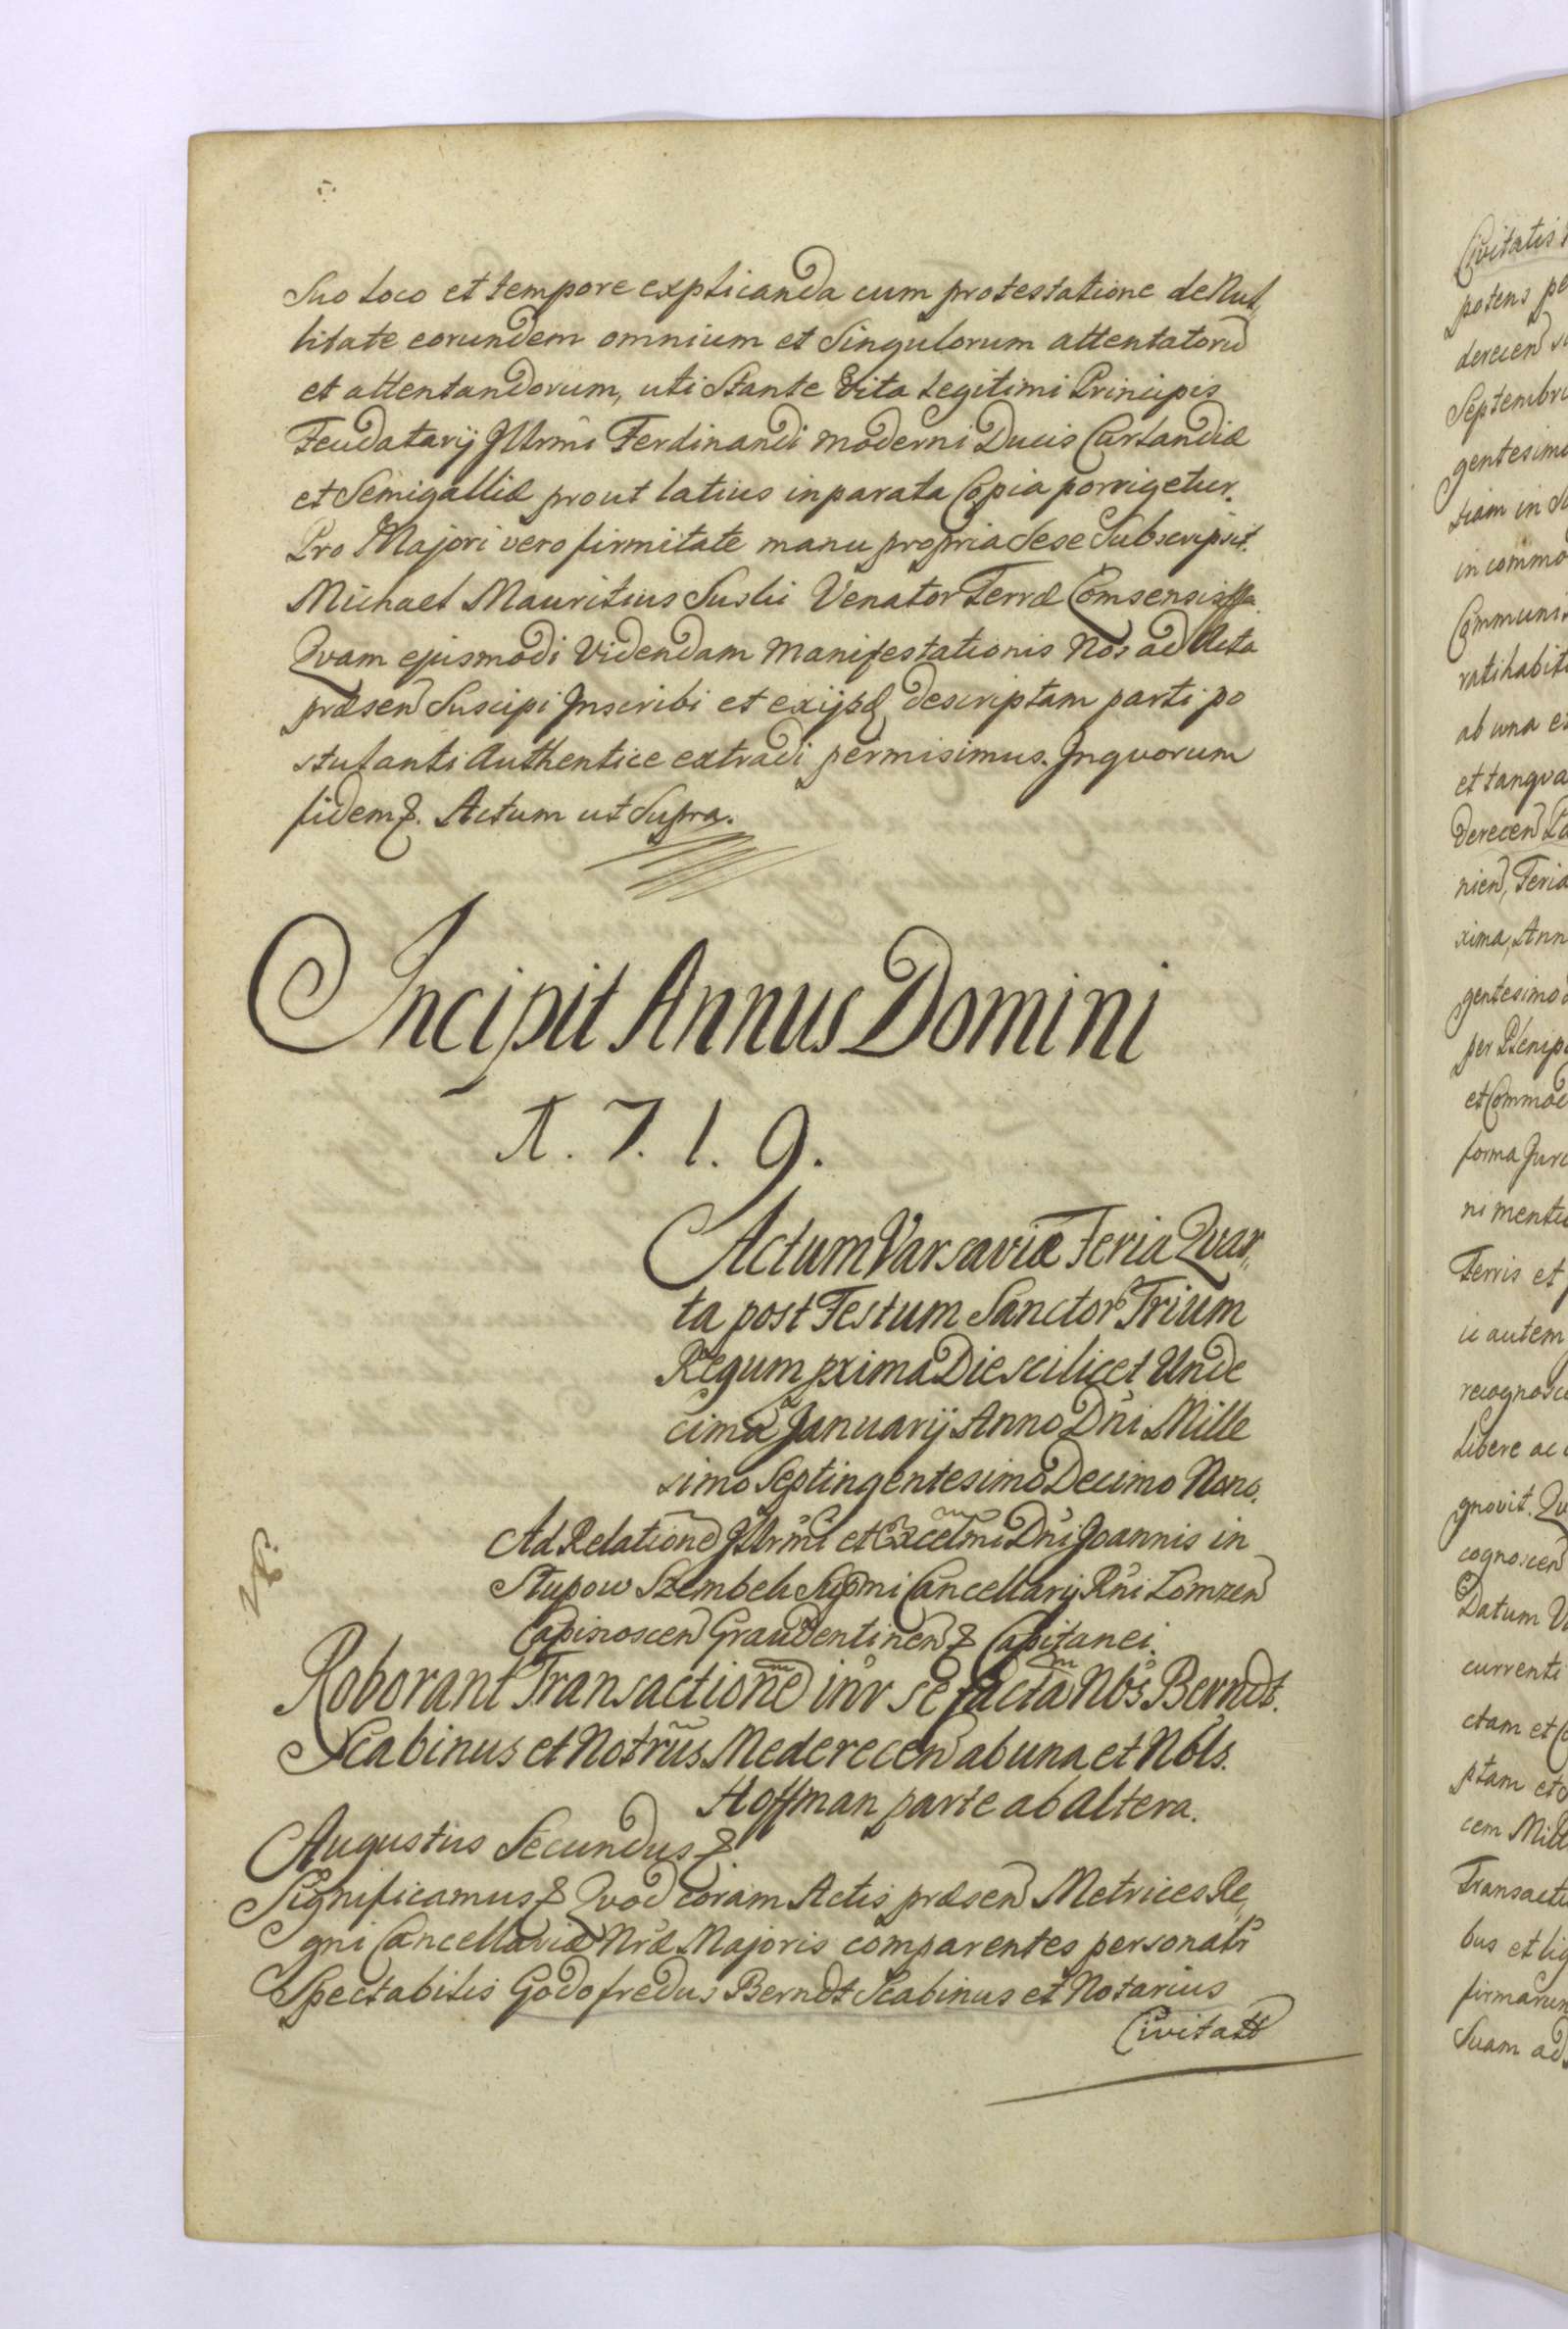 Suo loco et tempore explicanda cum protestatione de Nul,
litate eorundem omnium et Singulorum attentatorũ
et attentandorum, uti Stante Vita Legitimi Principis
Feudatarij Jllrmi Ferdinandi moderni Ducis Curlandiæ
et Semigalliæ prout latius in parata Copia porrigetur.
Pro Majori vero firmitate manu propria sese Subscripsit.
Michael Mauritius Suski Venator Terræ
Qvam ejusmodi Videndam Manifestationis Nos ad Acta
præsen Suscipi Jnscribi et exijsdẽ descriptam parti po
stulanti Authentice extradi permisimus. Jnqvorum
fidem &. Actum ut Supra.
Incipit Annus Domini
1. 7. 1. 9.
Actum Varsaviæ Feria Qvar,,
ta post Festum Sanctor Trium
Regum pxima Die scilicet Unde
cima Januarij Anno Dni Mille
simo Septingentesimo Decimo Nono.
Ad Relatione Jllrmi et Excelmi Dni Joannis in
Słupow Szembek Supmi Cancellarij Rni Łomzen
Graudentinen & Capitanei.
Roborant Transactionem inr se factam Nbs Berndt.
Scabinus et Notrius Mederecen ab una et Nbls.
Hoffman parte ab altera.
Augustus Secundus &.
Significamus & Qvod coram Actis præsen Metrices Re,,
gni Cancellariæ Nræ Majoris comparentes personalr
Spectabilis Godofredus Berndt Scabinus et Notarius
Civitatis
Civitatis
potens pe
derecen su
Septembri
gentesimo
tiam in
in commo
Communi
ratihabit
ab una et
et tanqva
derecen
nien, Feria
xima, Ann
gentesimo
per Plenip
et Commod
forma Jure
ni mente
Terris et
ie autem
recognosce
Libere ac
gnovit. Qu
cognoscen
Datum
currenti
ctam et
ptam et
cem Mill
Transacti
bus et lig
firmarun
Suam ad